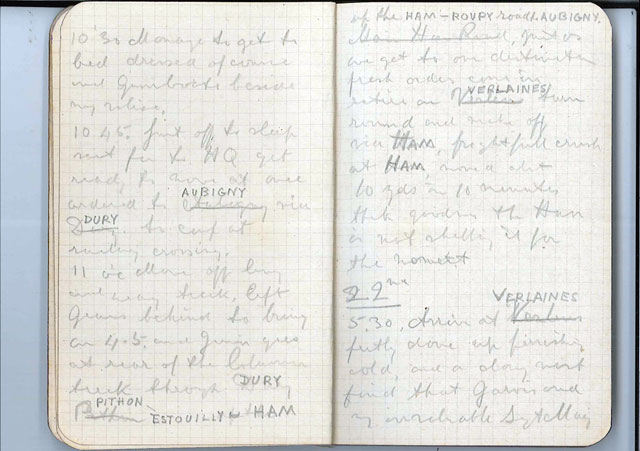 10'30 Manage to get to
bed dressed of course
and Gumboots beside
my
10.45. Just off to sleep
sent for to HQ get
ready to move at once
AUBIGNY
ordered to via
DURY
to camp at
railway crossing.
11 o/c Move off long
and weary trek. Left
behind to bring
on 4.5. and
at rear of the Column
trek through DURY
PITHON
ESTOUILLY – HAM
up the HAM–ROUPY road to AUBIGNY.
Main Ham Road, just as
we get to our destination
fresh orders come in
VERLAINES
retire on turn
round and make off
via HAM, frightfull crush
at HAM, move abt
10 yds in 10 minutes
thank goodness the Hun
is not shelling it for
the moment
22nd
VERLAINES
5.30. Arrive at
fully done up
cold, and a
find that and
my Sgt